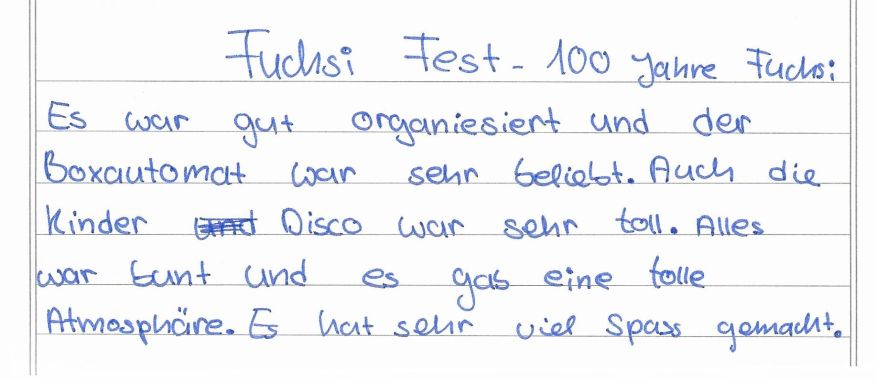 Fuchsi Fest - 100 Jahre Fuchsi
Es war gut organiesiert und der
Boxautomat war sehr beliebt. Auch die
Kinder Disco war sehr toll. Alles
war bunt und es gab eine tolle
Atmosphäre. Es hat sehr viel Spass gemacht.